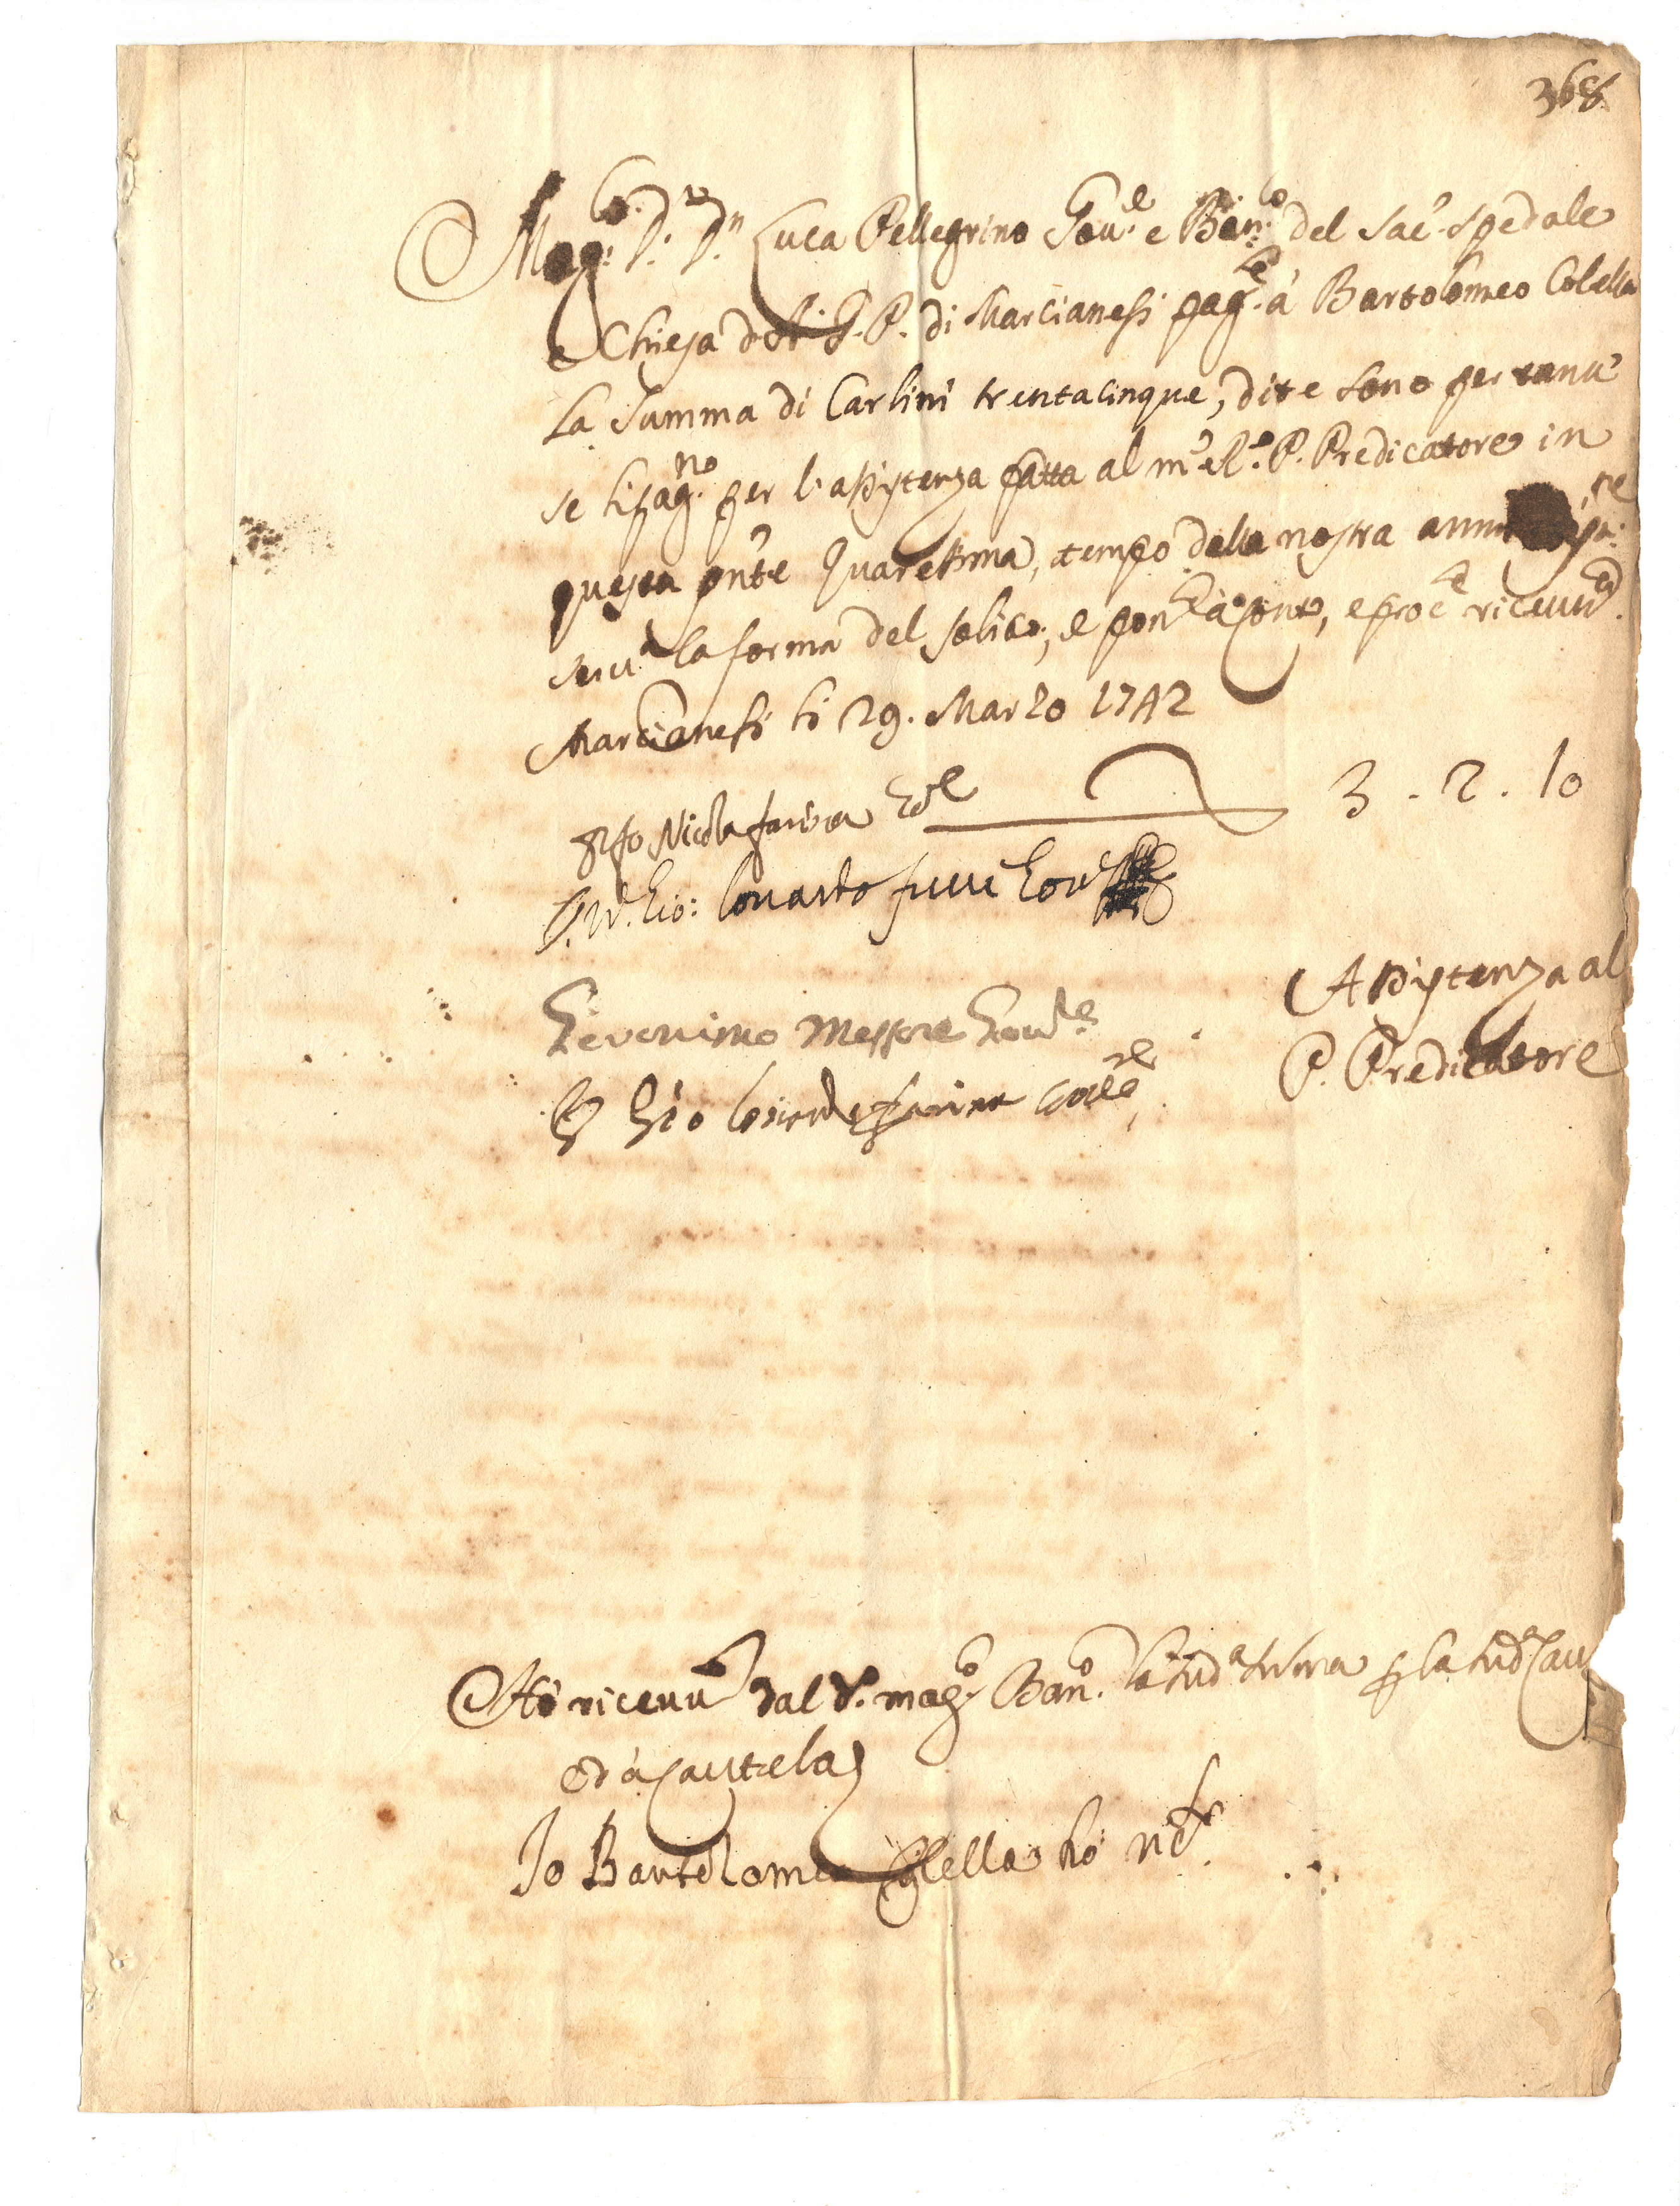 368
Mag.co S.r D.n Luca Pellegrino Gou.e e Ban.o del Sac. Spedale
e Chiesa A. G. P. di Marcianesi pag.te à Bartolomeo Colella
La Summa di Carlini trentacinque, dite sono per tanti
se li pag.no per l'assistenza fatta al m. R. P. Predicatore in
questa pnte Quaresima, a tempo della nostra
la forma del solito, e
Marcianesi li 29. Marzo 1742
Nicola farina 3 - 2 - 10
Gio:
Geronimo Messore Gou.re
Gio farina
Assistenza al
P. Predicatore
Hò riceuu.to dal d.o mag.co Ban.o la sud.a suma p la sud.a Cau
ed à cautela
Io Bartolomeo Colella hò